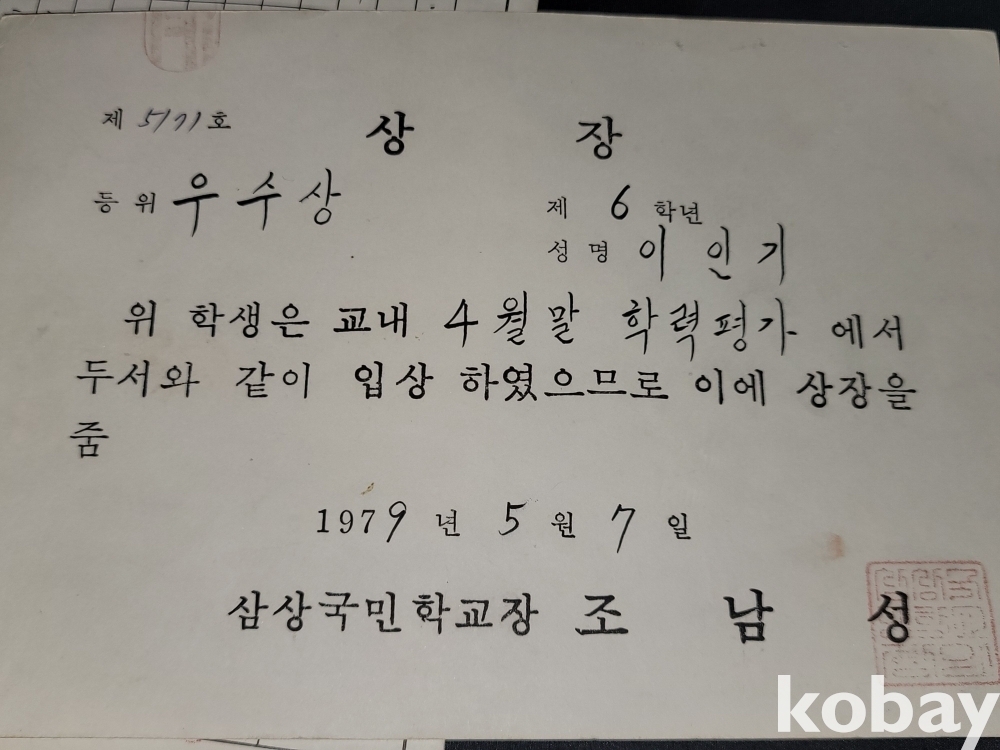 제 5171호
상 장
등위 우수상
제 6 학년
성명 이인기
위 학생은 교내 4월말 학력평가 에서
두서와 같이 입상 하였으므로 이에 상장을
줌
1979 년 5 월 7 일
삼상국민학교장 조 남 성
kobay